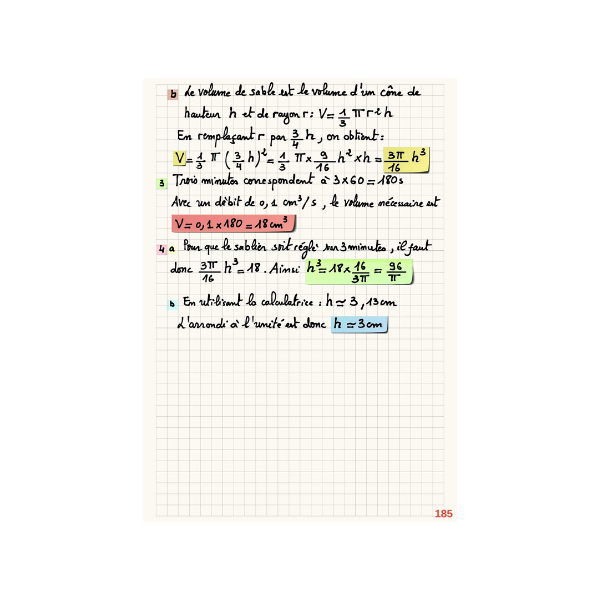 b Le volume de sable est le volume d'un cône de
hauteur h et de rayon r : V = 1/3 π r² h
En remplaçant r par 3/4 h, on obtient :
V = 1/3 π (3/4 h)² = 1/3 π × 9/16 h² × h = 3π/16 h³
3 Trois minutes correspondent à 3 × 60 = 180 s
Avec un débit de 0,1 cm³/s, le volume nécessaire est
V = 0,1 × 180 = 18 cm³
4 a Pour que le sablier soit réglé sur 3 minutes, il faut
donc 3π/16 h³ = 18. Ainsi h³ = 18 × 16/3π = 96/π
b En utilisant la calculatrice : h ≃ 3,13 cm
L'arrondi à l'unité est donc h ≃ 3 cm
185